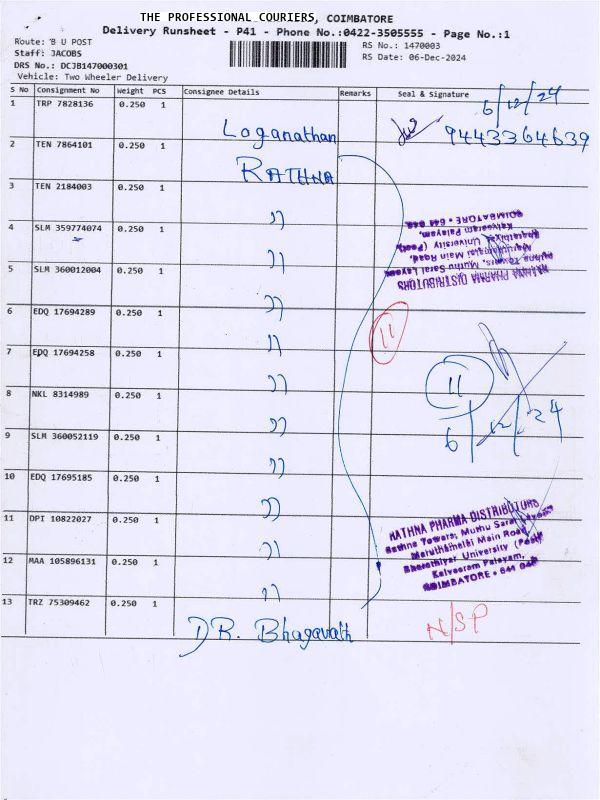 THE PROFESSIONAL COURIERS, COIMBATORE
Delivery Runsheet - P41 - Phone No.:0422-3505555 - Page No.:1
Route: B U POST
RS No.: 1470003
Staff: JACOBS
RS Date: 06-Dec-2024
DRS No.: DCJB147000301
Vehicle: Two Wheeler Delivery
S No Consignment No Weight PCS Consignee Details Remarks Seal & Signature
6/12/24
1 TRP 7828136 0.250 1 Loganathan 9443364639
2 TEN 7864101 0.250 1 RATHNA
3 TEN 2184003 0.250 1 ))
4 SLM 359774074 0.250 1 ))
5 SLM 360012004 0.250 1 ))
RATHNA PHARMA DISTRIBUTORS
Rathna Towers, Muthu Saral Layout
Maruthamalai Main Road,
Bharathiyar University (Post)
Kalveeram Palayam,
COIMBATORE - 641 046
6 EDQ 17694289 0.250 1 ))
11
7 EDQ 17694258 0.250 1 ))
11
8 NKL 8314989 0.250 1 ))
6/12/24
9 SLM 360052119 0.250 1 ))
10 EDQ 17695185 0.250 1 ))
11 DPI 10822027 0.250 1 ))
RATHNA PHARMA DISTRIBUTORS
Rathna Towers, Muthu Saral Layout
Maruthamalai Main Road,
Bharathiyar University (Post)
Kalveeram Palayam,
COIMBATORE - 641 046
12 MAA 105896131 0.250 1 ))
13 TRZ 75309462 0.250 1 DR. Bhagavath N/SP